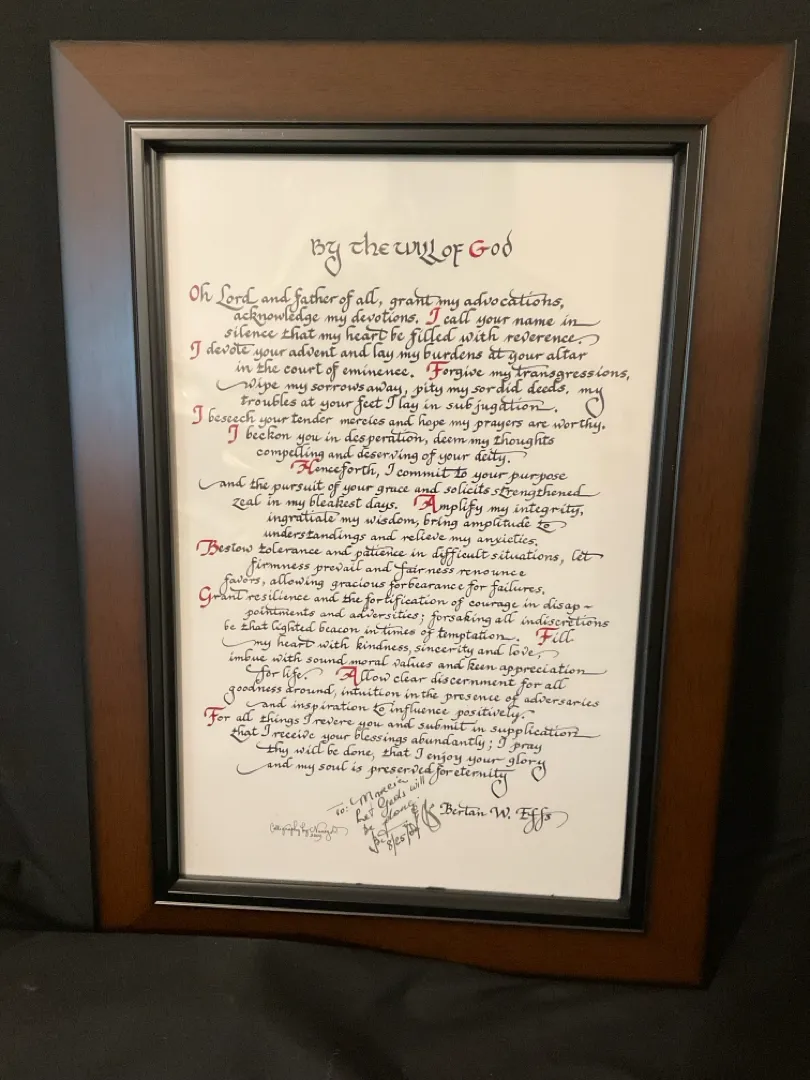 By the will of God
Oh Lord and father of all, grant my advocations,
acknowledge my devotions. I call your name in
silence that my heart be filled with reverence.
I devote your advent and lay my burdens at your altar
in the court of eminence. Forgive my transgressions,
wipe my sorrows away, pity my sordid deeds. my
troubles at your feet I lay in subjugation.
I beseech your tender mercies and hope my prayers are worthy.
I beckon you in desperation, deem my thoughts
compelling and deserving of your deity.
Henceforth, I commit to your purpose
and the pursuit of your grace and solicits strengthened
zeal in my bleakest days. Amplify my integrity,
ingratiate my wisdom, bring amplitude to
understandings and relieve my anxieties.
Bestow tolerance and patience in difficult situations, let
firmness prevail and fairness renounce
favors, allowing gracious forbearance for failures.
Grant resilience and the fortification of courage in disap-
pointments and adversities; forsaking all indiscretions
be that lighted beacon in times of temptation. Fill
my heart with kindness, sincerity and love.
imbue with sound moral values and keen appreciation
for life. Allow clear discernment for all
goodness around, intuition in the presence of adversaries
and inspiration to influence positively.
For all things I revere you and submit in supplication
that I receive your blessings abundantly; I pray
thy will be done, that I enjoy your glory
and my soul is preserved for eternity
To:
Let Gods will
be done.
Bertan W. Effs
Calligraphy by